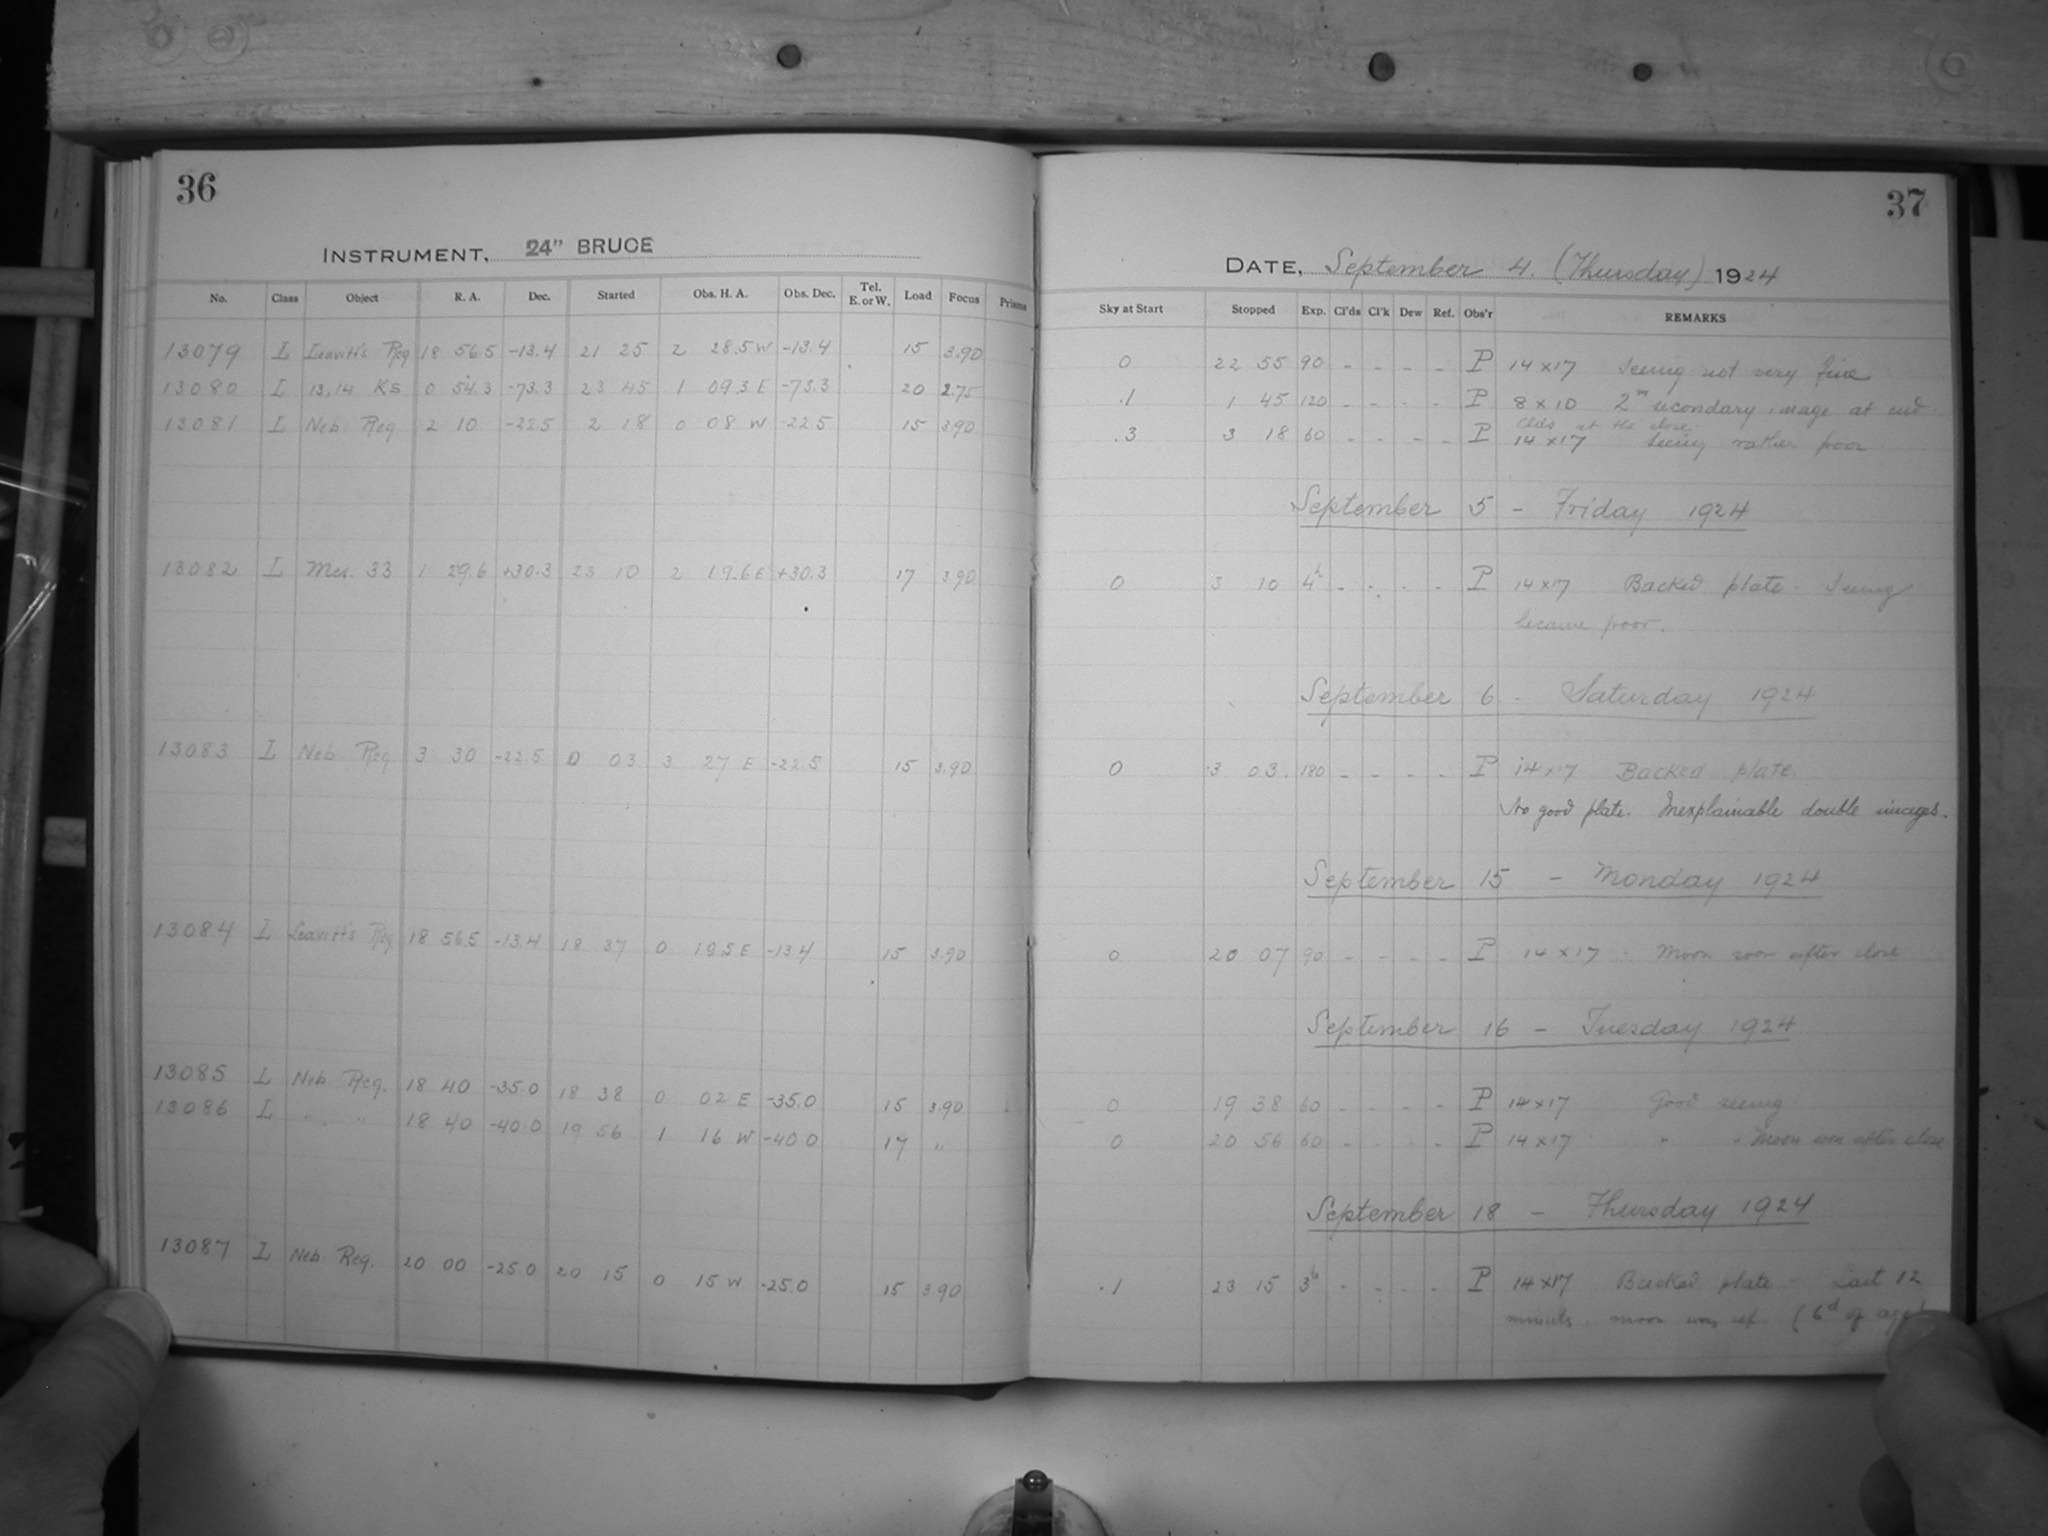 36
INSTRUMENT, 24" BRUCE
No. Class Object R. A. Dec. Started Obs. H. A. Obs. Dec. Tel. E. or W. Load Focus Prisms
13079 L Leavitt's Reg 18 56.5 -13.4 21 25 2 28.5 W -13.4 15 3.90
13080 L 13,14 KS 0 54.3 -73.3 23 45 1 09.3 E -73.3 20 2.75
13081 L Neb Reg 2 10 -22.5 2 18 0 08 W -22.5 15 3.90
13082 L Mes. 33 1 29.6 +30.3 23 10 2 19.6 E +30.3 17 3.90
13083 L Neb Reg 3 30 -22.5 0 03 3 27 E -22.5 15 3.90
13084 L Leavitt's Reg 18 56.5 -13.4 18 37 0 19.5 E -13.4 15 3.90
13085 L Neb Reg. 18 40 -35.0 18 38 0 02 E -35.0 15 3.90
13086 L " " 18 40 -40.0 19 56 1 16 W -40.0 17 "
13087 L Neb Reg. 20 00 -25.0 20 15 0 15 W -25.0 15 3.90
37
DATE, September 4. (Thursday) 1924
Sky at Start Stopped Exp. Cl'ds Cl'k Dew Ref. Obs'r REMARKS
0 22 55 90 - - - - P 14x17 Seeing not very fine
.1 1 45 120 - - - - P 8x10 2m secondary image at end
Clds at the close.
.3 3 18 60 - - - - P 14x17 Seeing rather poor
September 5 - Friday 1924
0 3 10 4h - - - - P 14x17 Backed plate - Seeing
became poor.
September 6 - Saturday 1924
0 3 03 180 - - - - P 14x17 Backed plate.
No good plate. Inexplainable double images.
September 15 - Monday 1924
0 20 07 90 - - - - P 14x17 - Moon soon after close
September 16 - Tuesday 1924
0 19 38 60 - - - - P 14x17 Good seeing
0 20 56 60 - - - - P 14x17 " " Moon soon after close
September 18 - Thursday 1924
.1 23 15 3h - - - - P 14x17 Backed plate - Last 12
minutes moon was up (6d of age)